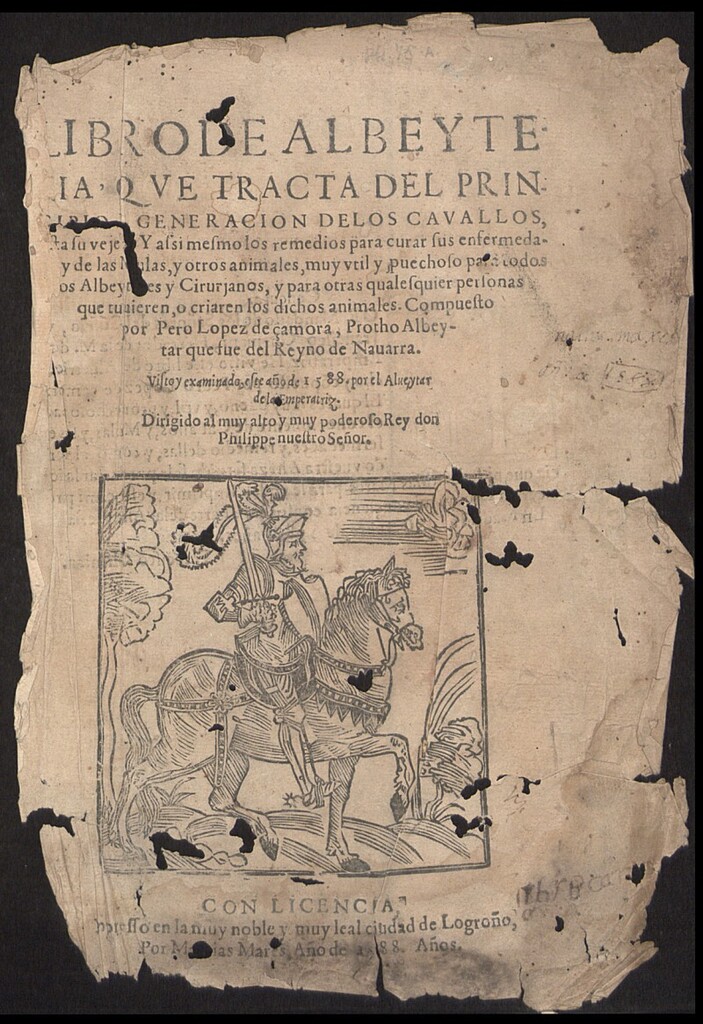 LIBRO DE ALBEYTE-
IA, QVE TRACTA DEL PRIN-
GENERACION DELOS CAVALLOS,
ta su veje Y assi mesmo los remedios para curar sus enfermeda-
y de las Mulas, y otros animales, muy vtil y puechoso para todos
os Albeytares y Cirurjanos, y para otras qualesquier personas
que tuuieren, o criaren los dichos animales. Compuesto
por Pero Lopez de çamora, Protho Albey-
tar que fue del Reyno de Nauarra.
Visto y examinado, este año de 1588. por el Alueytar
de la Emperatriz.
Dirigido al muy alto y muy poderoso Rey don
Philippe nuestro Señor.
CON LICENCIA
presso en la muy noble y muy leal ciudad de Logroño,
Por Mathias Mares, Año de 1588. Años.